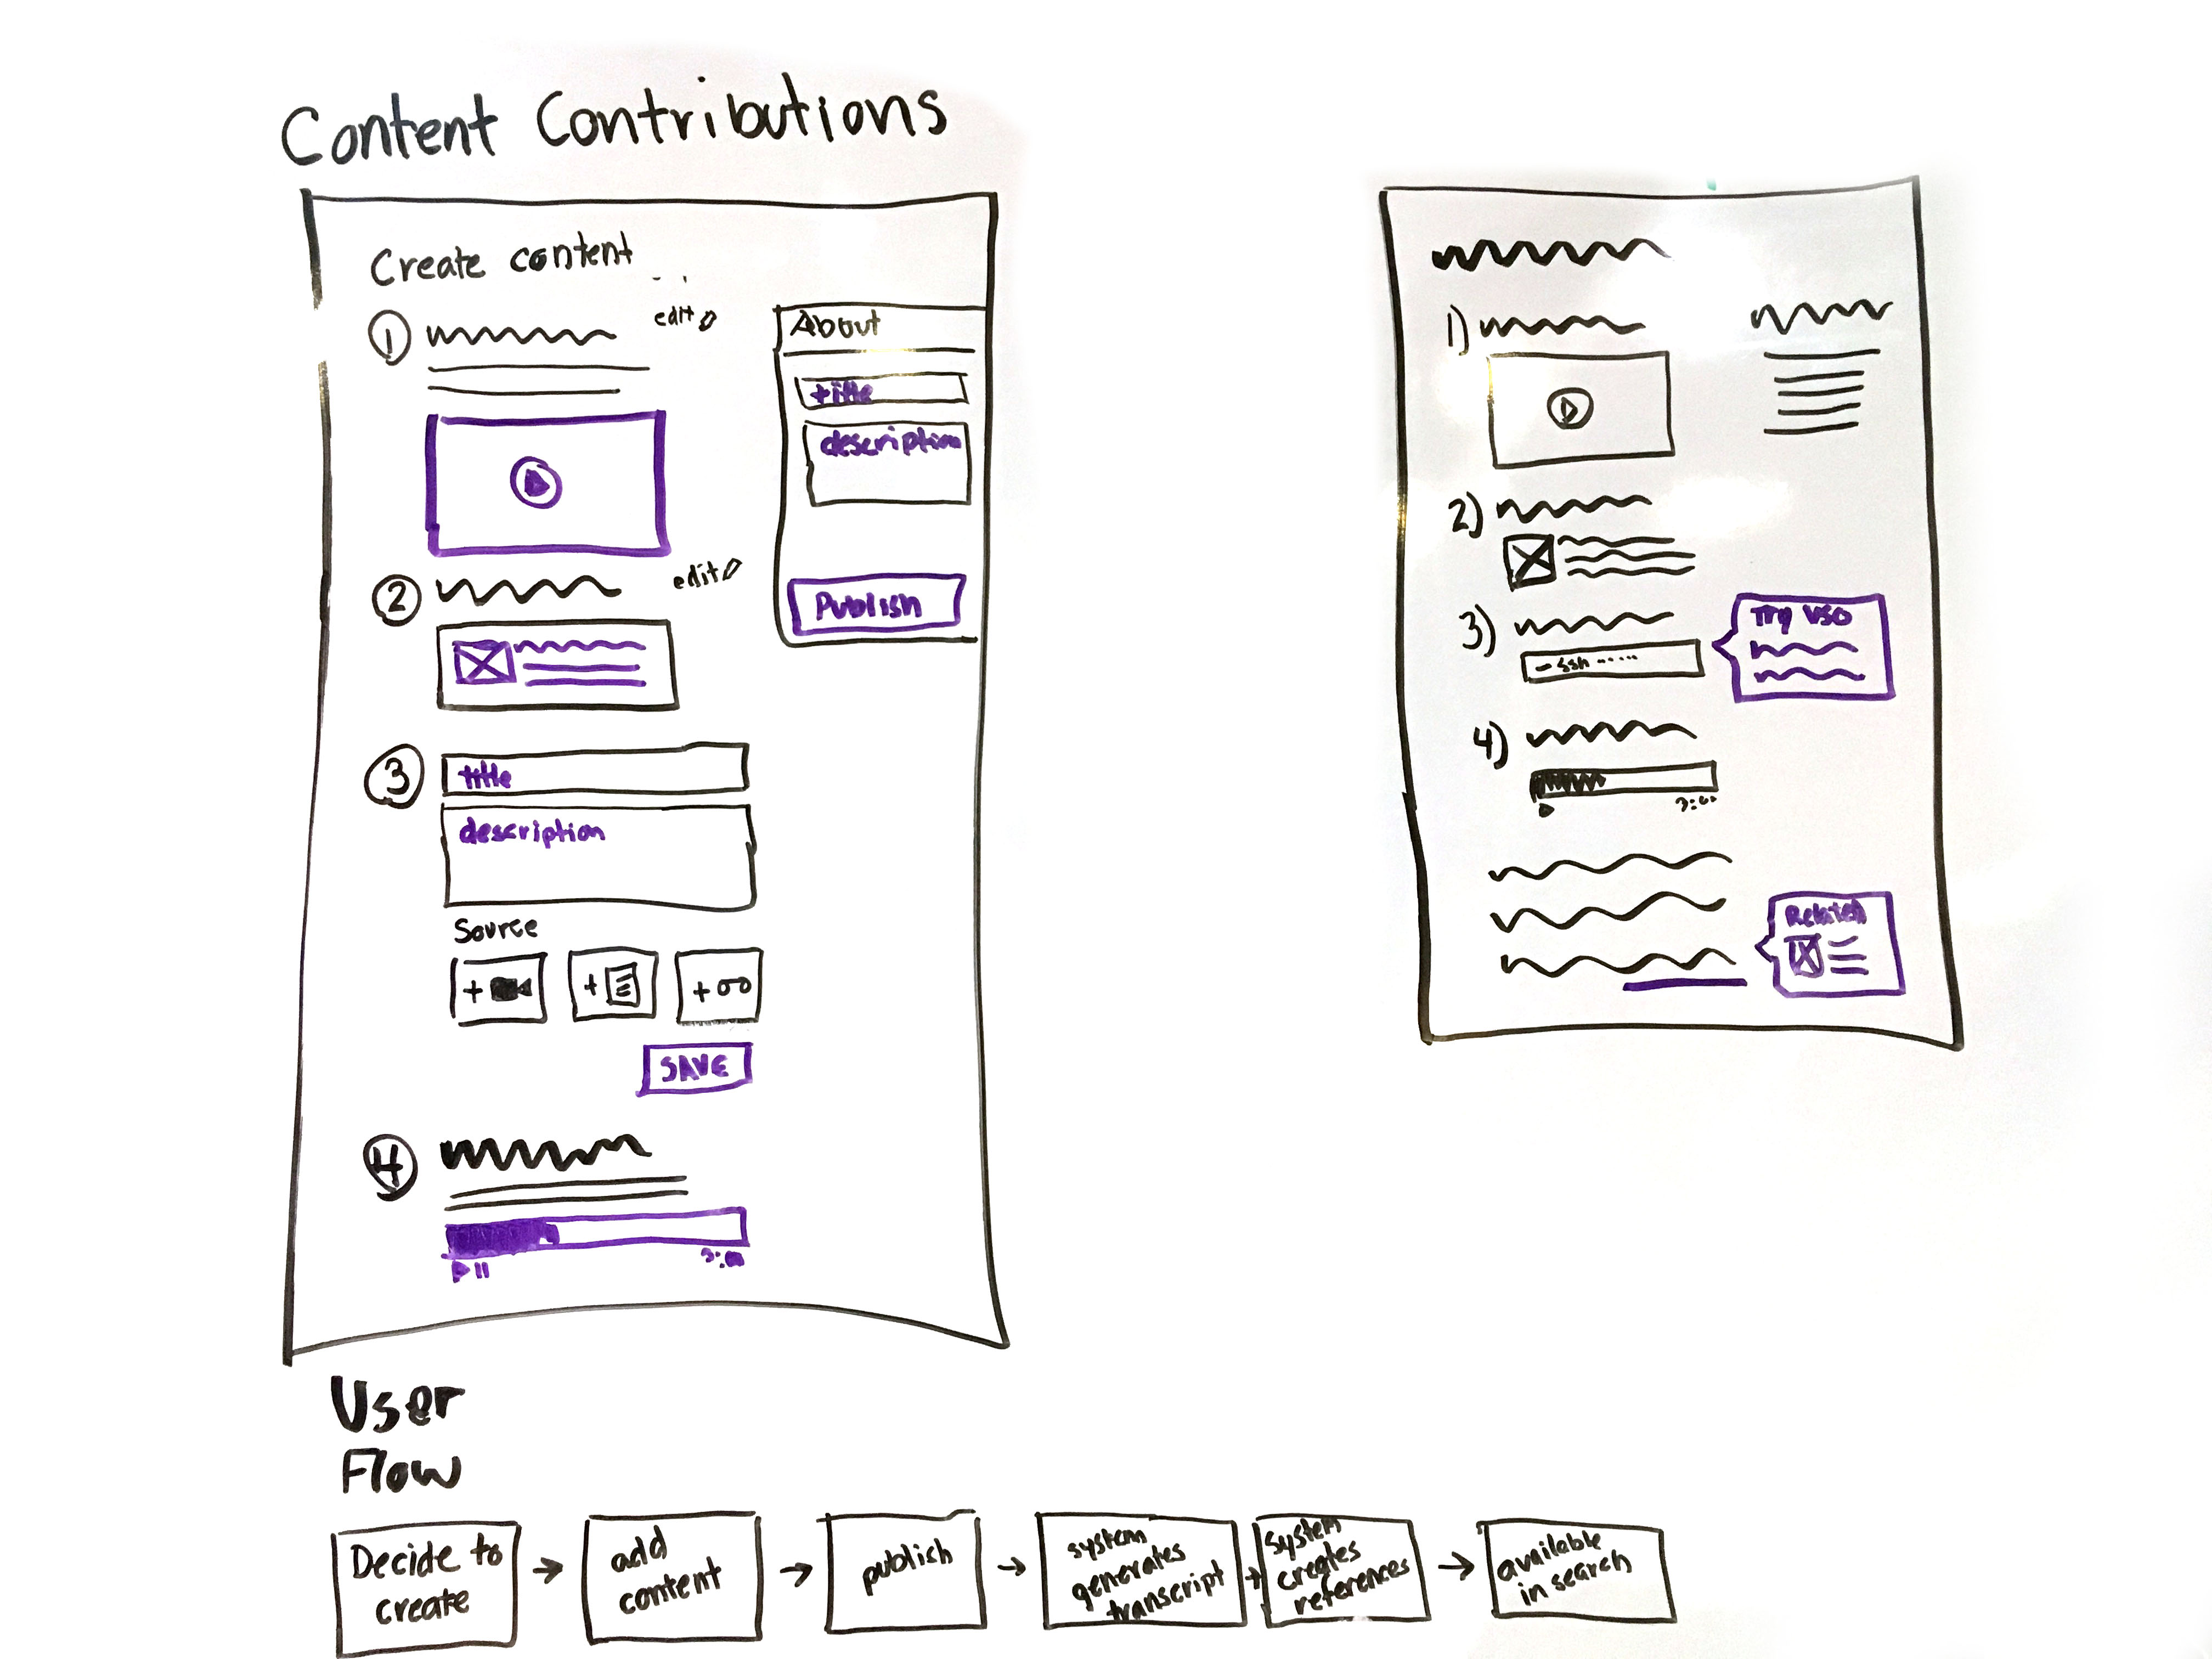 Content Contributions
Create content
1
edit
About
title
description
Publish
2
edit
3
title
description
Source
+
+
+
SAVE
4
1)
2)
3)
ssh
Try VSO
4)
Related
User
Flow
Decide to
create
→
add
content
→
publish
→
system
generates
transcript
→
system
creates
references
→
available
in search